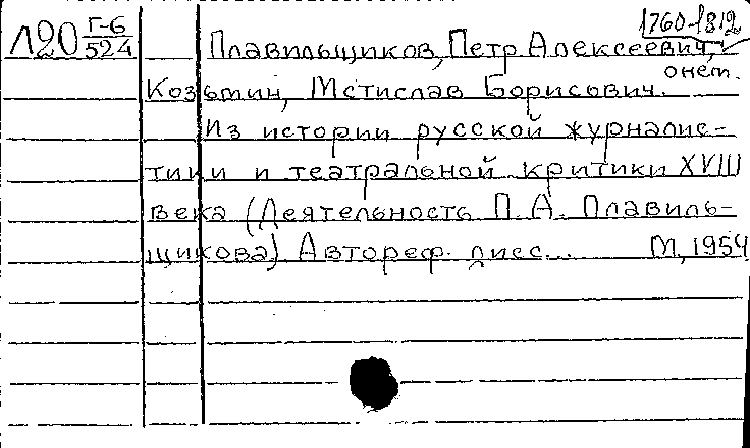 1760-1812
Л20 Г-6/524 Плавильщиков, Петр Алексеевич,
о нем.
Козьмин, Мстислав Борисович.
Из истории русской журналис-
тики и театральной критики XVIII
века (Деятельность П. А. Плавиль-
щикова) Автореф. дисс... М, 1954